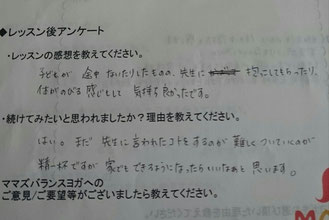 ◆レッスン後アンケート
・レッスンの感想を教えてください。
子どもが 途中ないたりしたものの、先生に 抱っこしてもらったり、
体がのびる感じもして 気持ち良かったです。
・続けてみたいと思われましたか？理由を教えてください。
はい。まだ 先生に言われたコトをするのが 難しくついていくのが
精一杯ですが 家でも できるようになったらいいなぁと 思います。
ママズバランスヨガへの
ご意見/ご要望等がございましたら教えてください。